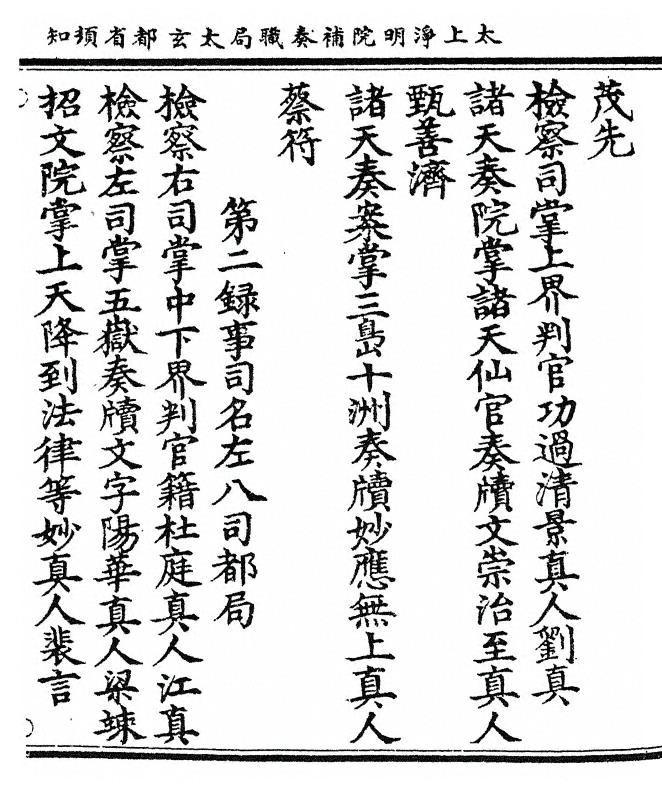 太上淨明院補奏職局太玄都省須知
茂先
檢察司掌上界判官功過清景真人劉真
諸天奏院掌諸天仙官奏牘文崇治至真人
甄善濟
諸天奏案掌三島十洲奏牘妙應無上真人
蔡符
第二録事司名左八司都局
檢察右司掌中下界判官籍杜庭真人江真
檢察左司掌五嶽奏牘文字陽華真人梁竦
招文院掌上天降到法律等妙真人裴言